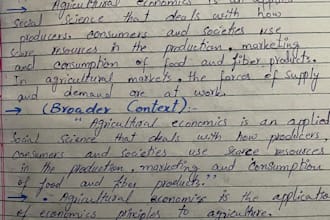 → Agricultural economics is an applied
social science that deals with how
producers, consumers and societies use
scare resources in the production, marketing
and consumption of food and fiber products.
In agricultural markets, the forces of supply
and demand are at work.
→ (Broader Context):-
"Agricultural economics is an applied
social science that deals with how producers
consumers and societies use scarce resources
in the production, marketing and consumption
of food and fiber products."
→ • Agricultural economics is the application
of economics principles to agriculture.